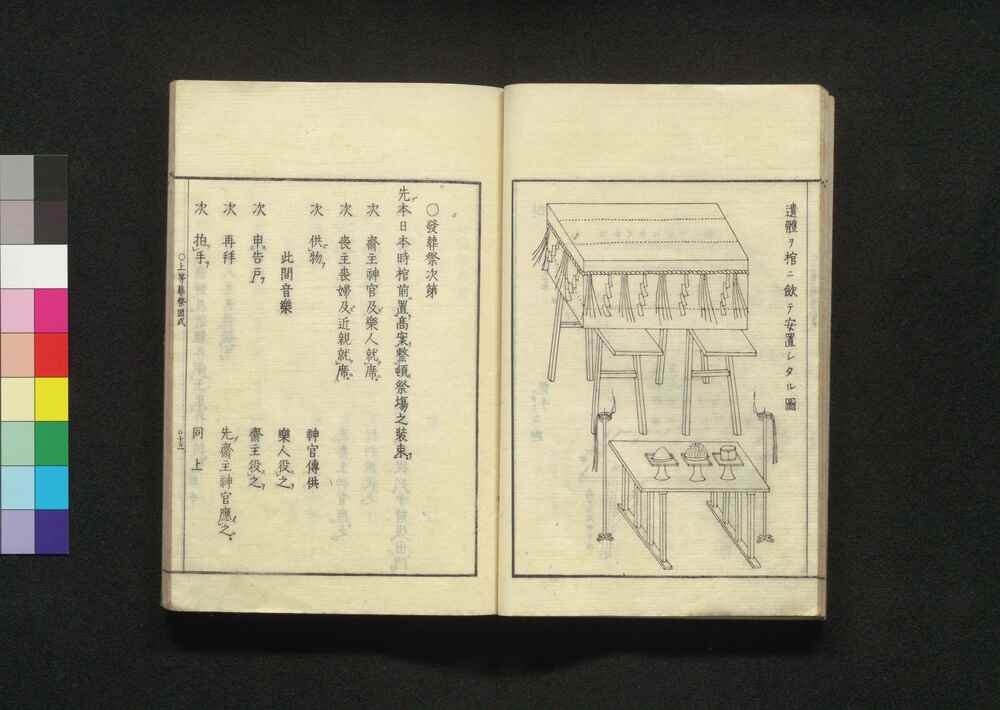 遺體ヲ棺ニ歛テ安置シタル圖
○發葬祭次第
先本日本時棺前置高案整頓祭場之裝束
次 齋主神官及樂人就席
次 喪主喪婦及近親就席
次 供物 神官傳供
此間音樂 樂人役之
次 申告戸 齋主役之
次 再拜 先齋主神官應之
次 拍手 同上
○上等葬祭圖式